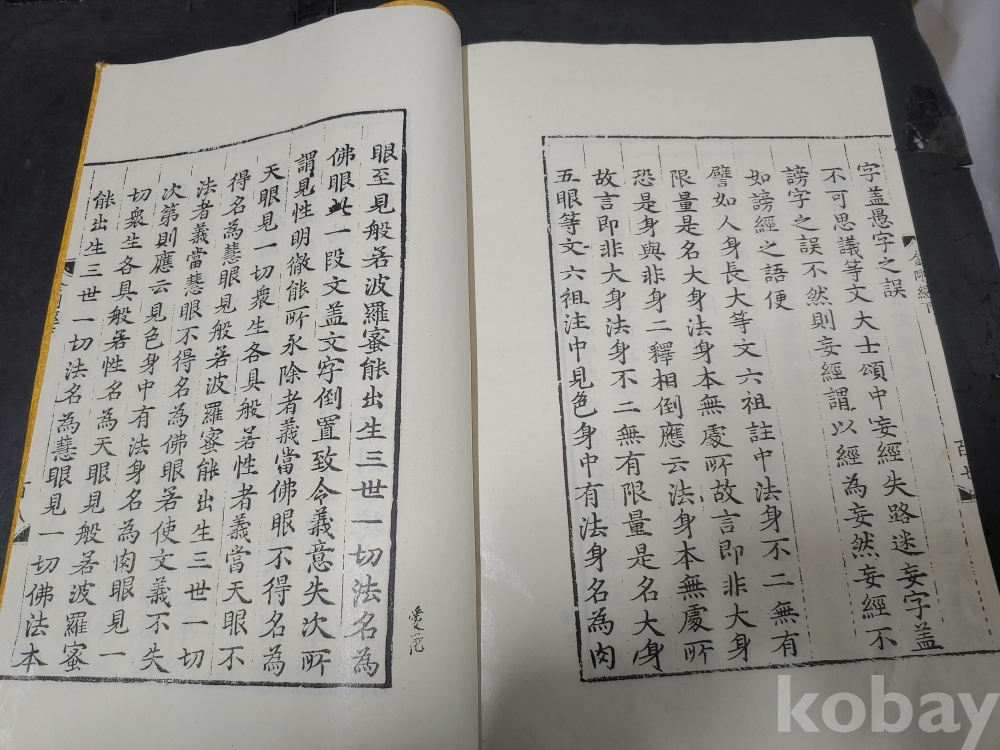 字盖愚字之誤
不可思議等文大士頌中妄經失路迷妄字盖
謗字之誤不然則妄經謂以經為妄然妄經不
如謗經之語便
譬如人身長大等文六祖註中法身不二無有
限量是名大身法身本無處所故言即非大身
恐是身與非身二釋相倒應云法身本無處所
故言即非大身法身不二無有限量是名大身
五眼等文六祖注中見色身中有法身名為肉
眼至見般若波羅蜜能出生三世一切法名為
佛眼此一段文盖文字倒置致令義意失次所
謂見性明徹能所永除者義當佛眼不得名為
天眼見一切衆生各具般若性者義當天眼不
得名為慧眼見般若波羅蜜能出生三世一切
法者義當慧眼不得名為佛眼若使文義不失
次第則應云見色身中有法身名為肉眼見一
切衆生各具般若性名為天眼見般若波羅蜜
能出生三世一切法名為慧眼見一切佛法本
kobay